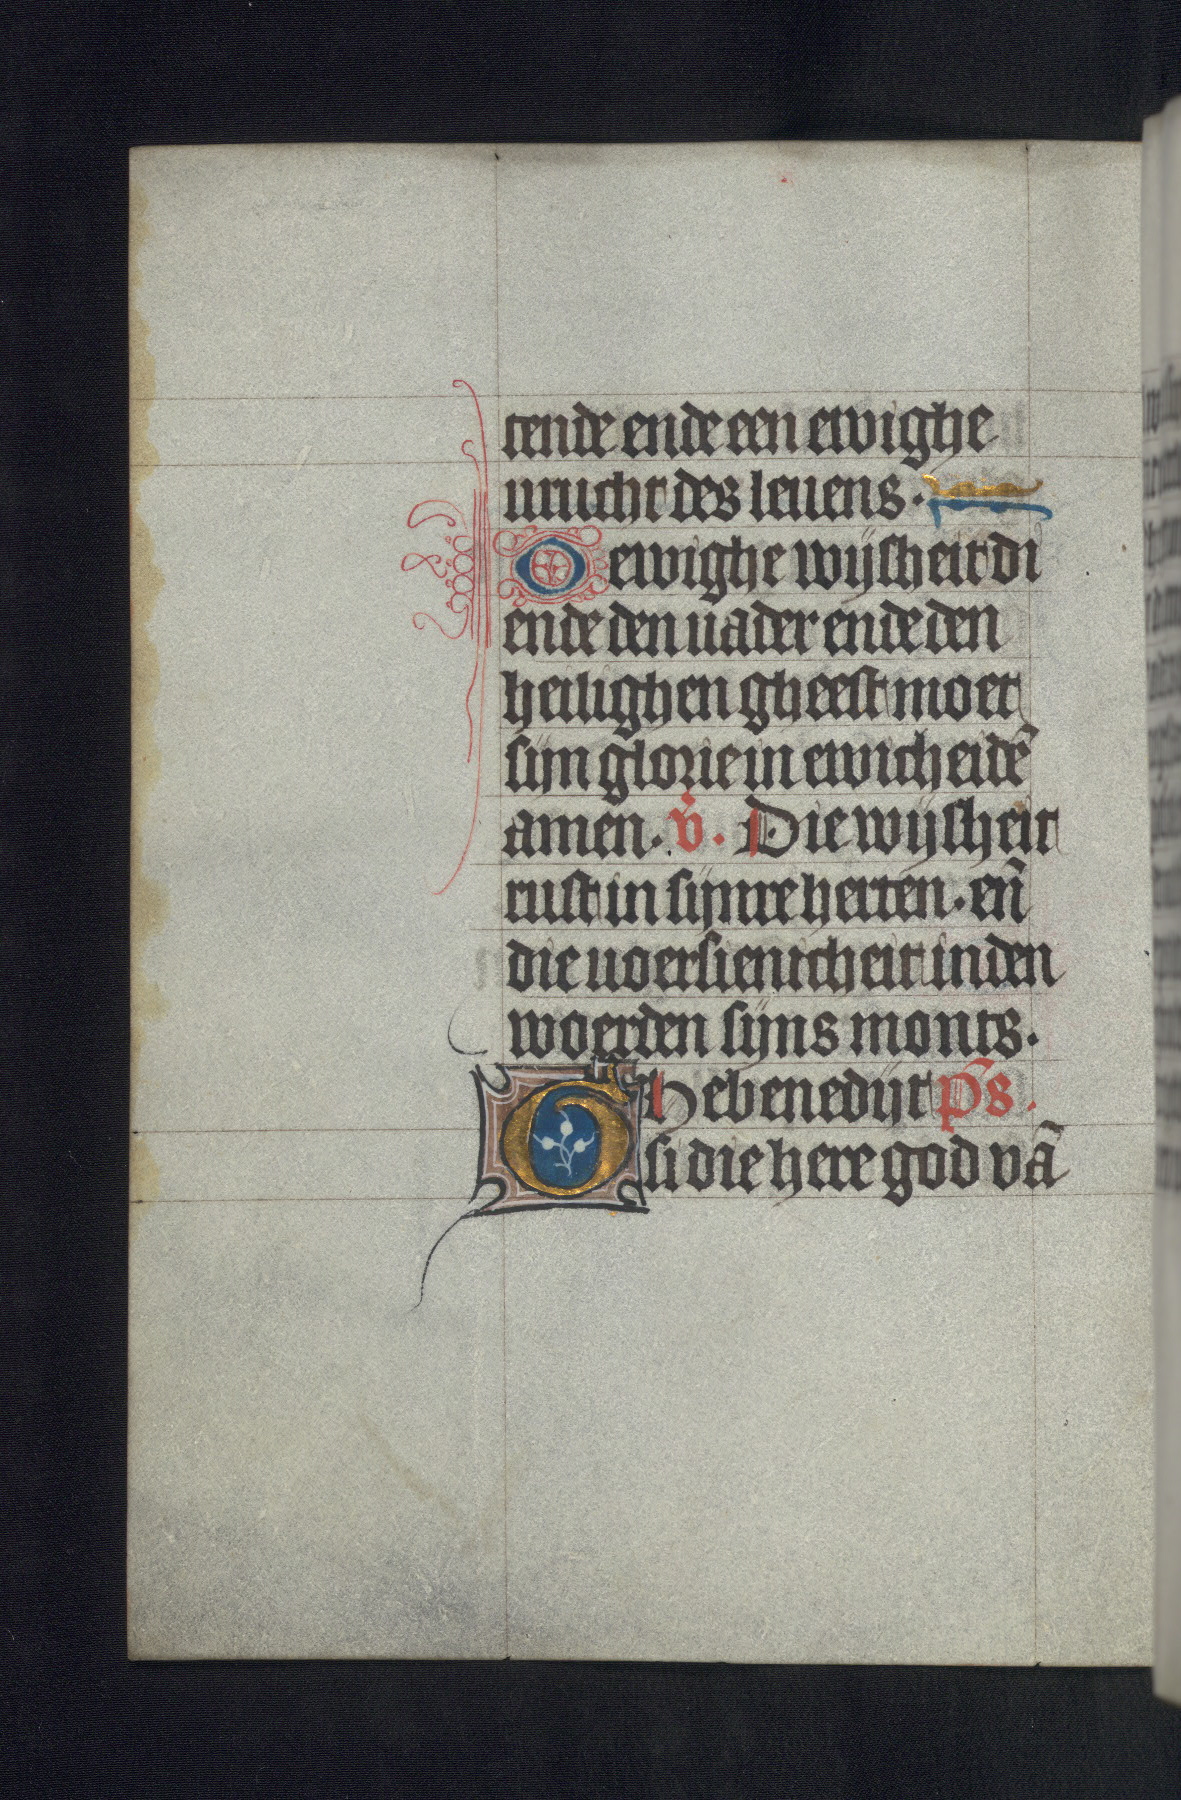 tende ende een ewighe
urucht des leuens.
O ewighe wijsheit di
ende den uader ende den
heilighen gheest moet
sijn glorie in ewicheidē
amen. v̇. Die wijsheit
rust in sijnre herten. en̄
die uoersienicheit in den
woerden sijns monts.
Ghebenedijt ps̄.
si die here god vā